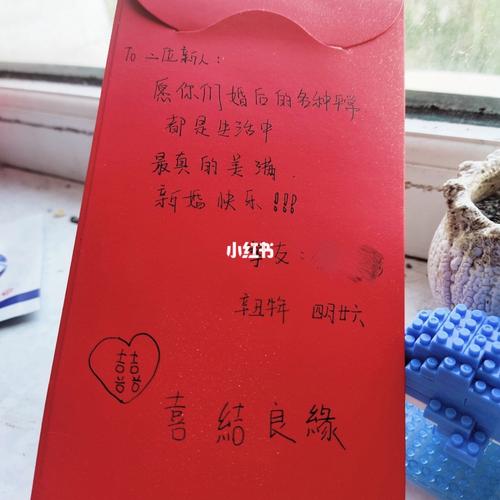 To 二位新人：
愿你们婚后的各种平常
都是生活中
最真的美满.
新婚快乐!!!
小红书
学友：
辛丑牛年 四月廿六
囍
喜結良緣